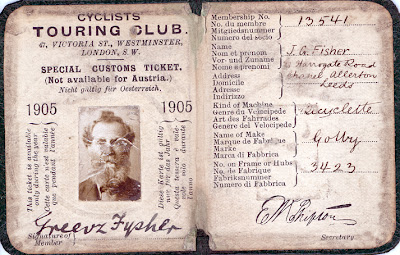 CYCLISTS'
TOURING CLUB.
47, VICTORIA ST., WESTMINSTER,
LONDON, S.W.
SPECIAL CUSTOMS TICKET.
(Not available for Austria.)
Nicht gültig fur Oesterreich.
1905 1905
This ticket is available
only during the year
Cette carte n'est valable
que pendant l'année
Diese Karte ist gültig
nur für das Jahr
Questa tessera vale
sole per
Signature of
Member
Membership No.
No. du membre
Mitgliedsnummer
Numero del socio
13541
Name
Nom et prénom
Vor- und Zuname
Nome e prenomi
J. G. Fisher
Address
Domicile
Adresse
Indirizzo
Harrogate Road
Chapel Allerton
Leeds
Kind of Machine
Genre du Vélocipède
Art des Fahrrades
Genere del Velocipede
Bicyclette
Name of Make
Marque de Fabrique
Marke
Marca di Fabbrica
No. on Frame or Hubs
No. de Fabrique
Fabriksnummer
Numero di Fabbrica
3423
Secretary.